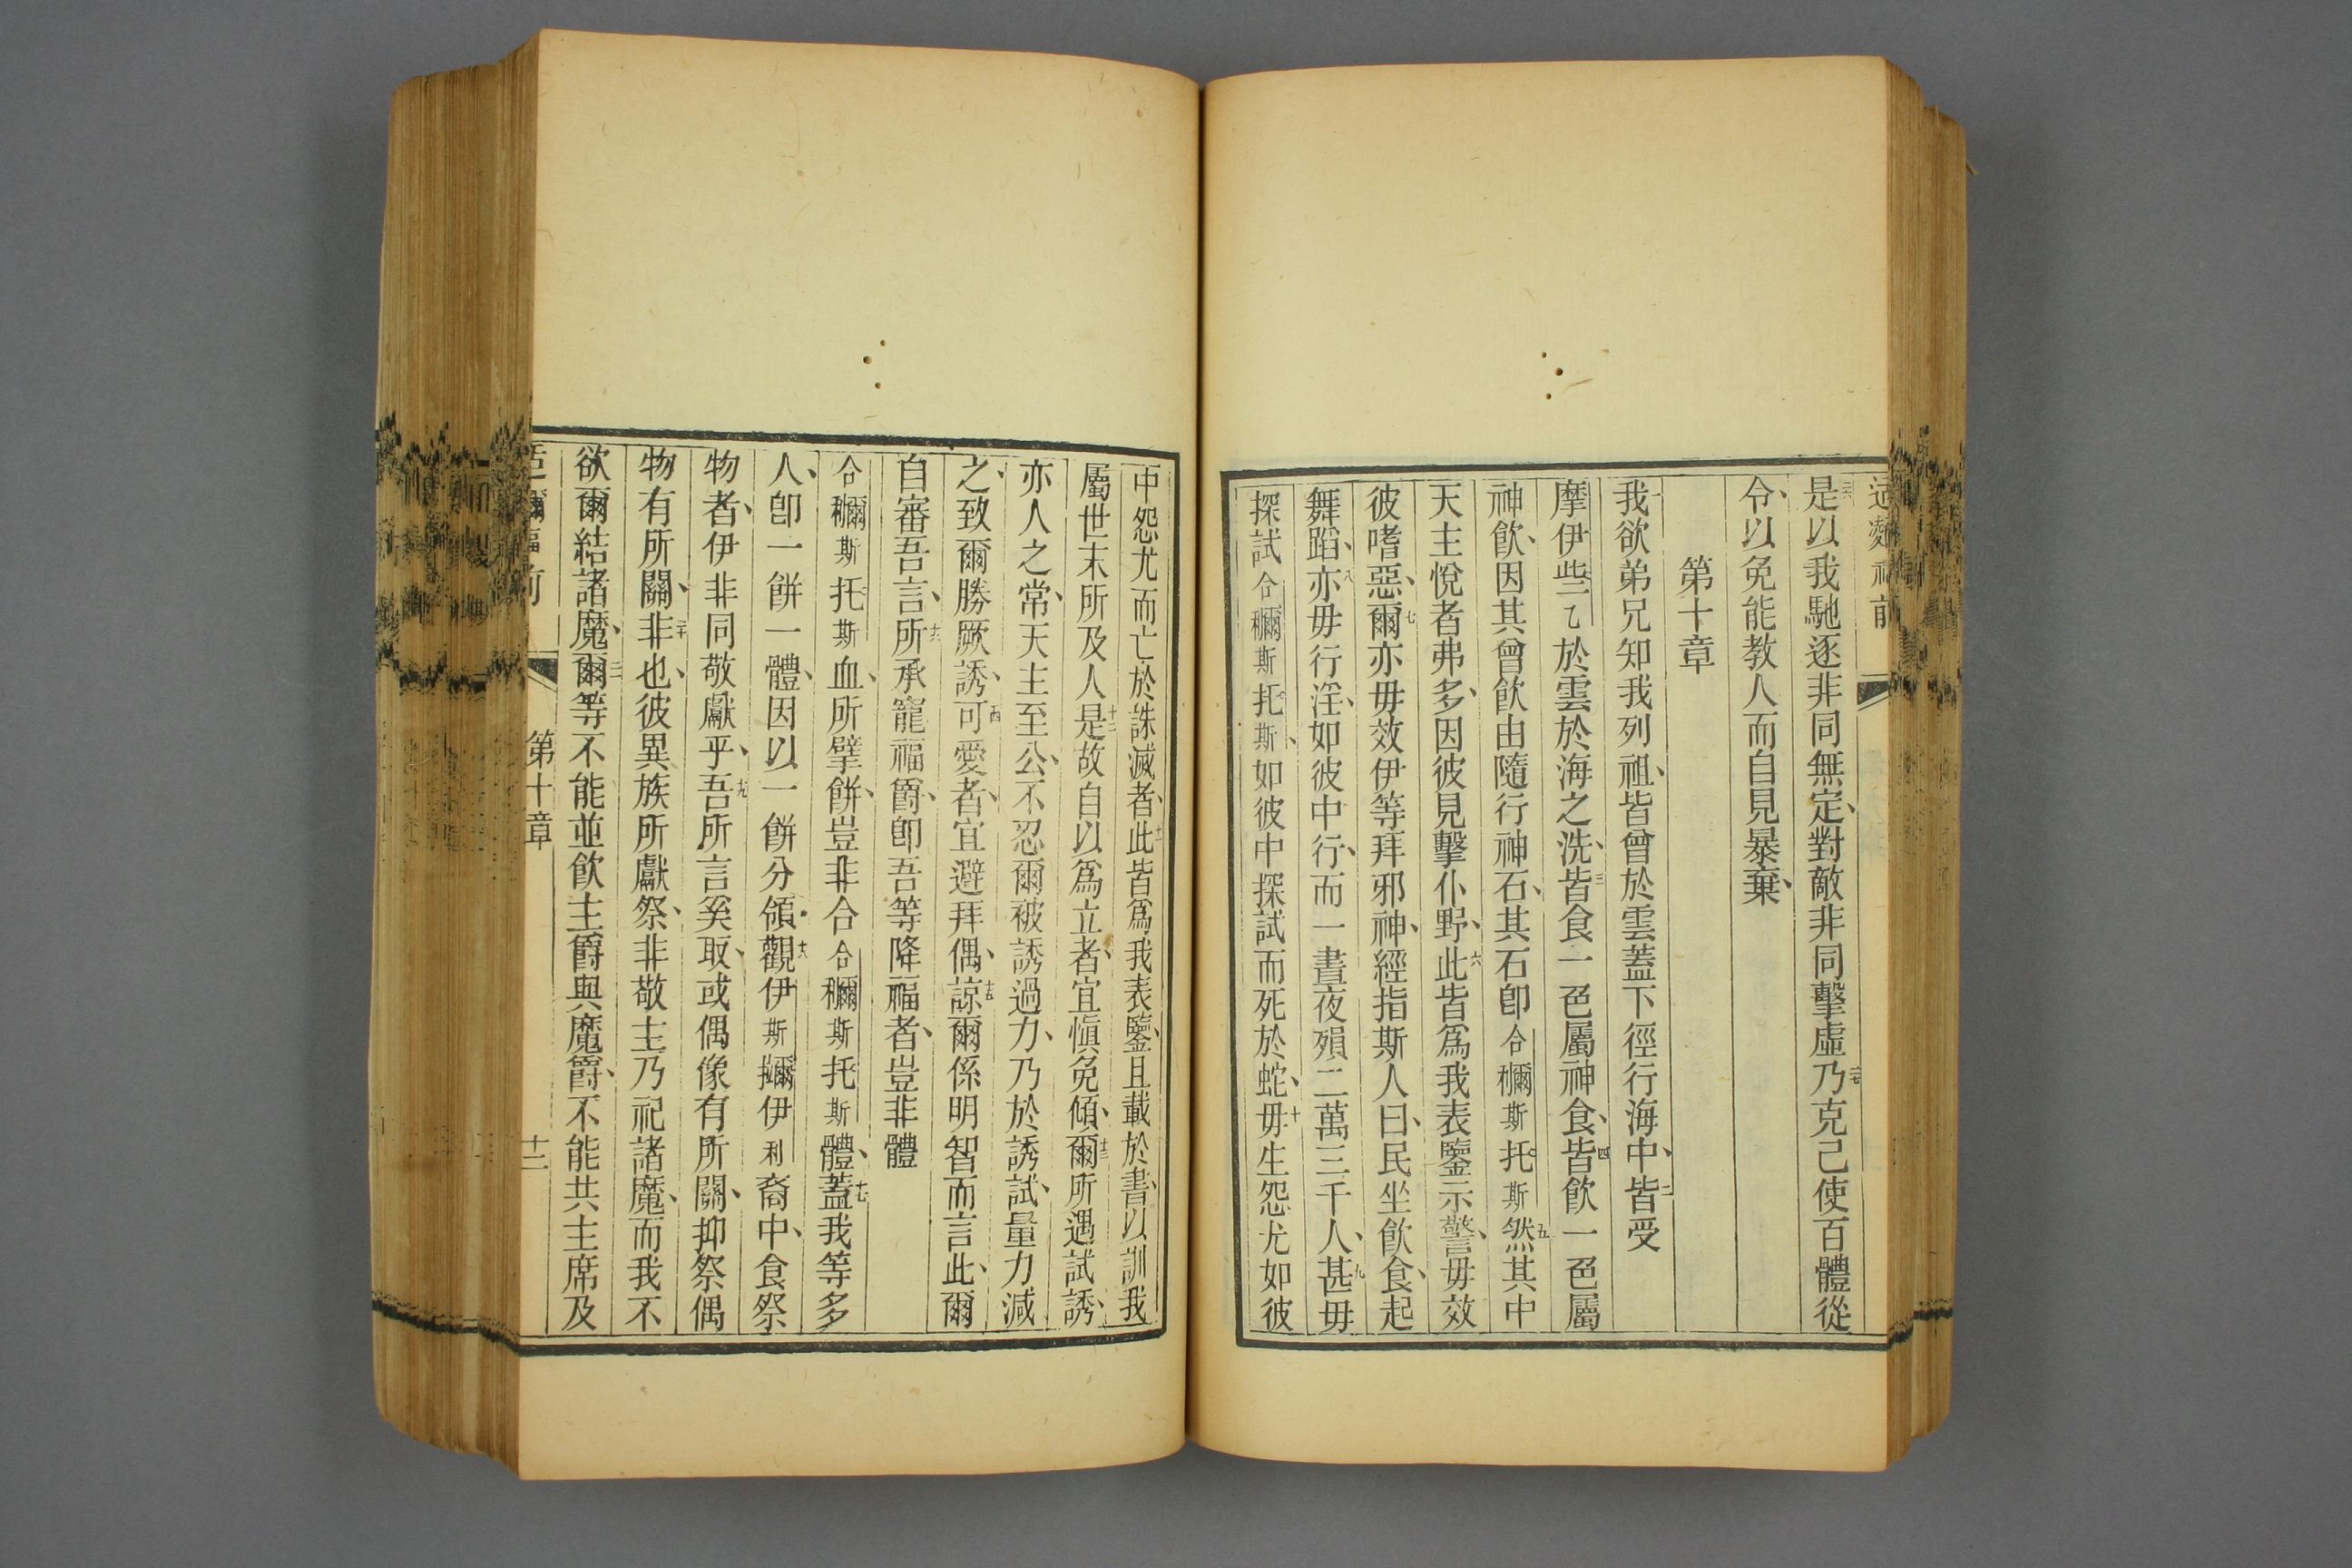 是以我馳逐非同無定、對敵非同擊虛乃克己使百體從
令、以免能教人而自見暴棄、
第十章
我欲弟兄知我列祖、皆曾於雲蓋下徑行海中、皆受
摩伊些乙於雲於海之洗、皆食一色屬神食、皆飲一色屬
神飲、因其曾飲由隨行神石、其石卽合穪斯托斯然其中
天主悅者弗多、因彼見擊仆野、此皆爲我表鑒示警、毋效
彼嗜惡、爾亦毋效伊等拜邪神、經指斯人曰、民坐飲食、起
舞蹈、亦毋行淫、如彼中行、而一晝夜殞二萬三千人、甚毋
探試合穪斯托斯、如彼中探試而死於蛇、毋生怨尤如彼
中怨尤而亡於誅滅者、此皆爲我表鑒、且載於書、以訓我
屬世末所及人是故自以爲立者、宜愼免傾、爾所遇試誘、
亦人之常、天主至公、不忍爾被誘過力、乃於誘試、量力減
之、致爾勝厥誘、可愛者、宜避拜偶、諒爾係明智而言此、爾
自審吾言、所承寵福爵、卽吾等降福者、豈非體
合穪斯托斯血、所擘餅、豈非合合穪斯托斯體、蓋我等多
人、卽一餅一體、因以一餅分領觀伊斯㺘伊利裔中、食祭
物者、伊非同敬獻乎、吾所言奚取、或偶像有所關、抑祭偶
物有所關、非也、彼異族所獻祭、非敬主乃祀諸魔、而我不
欲爾結諸魔、爾等不能並飮主爵與魔爵、不能共主席及
第十章
十二